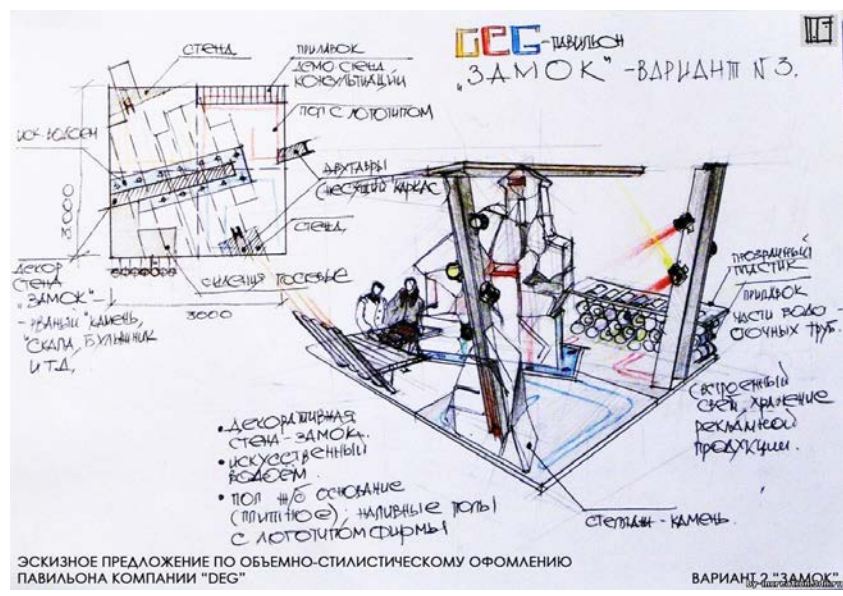 DEG-ПАВИЛЬОН
„ЗАМОК" - ВАРИАНТ N 3.
СТЕНД
ПРИЛАВОК
ДЕМО СТЕНД
КОНСУЛЬТАЦИИ
ПОЛ С ЛОГОТИПОМ
ИСК. ВОДОЕМ
ДВУТАВРЫ
(НЕСУЩИЙ КАРКАС
СТЕНД
3000
ДЕКОР
СТЕНД
„ЗАМОК"-
- РВАНЫЙ" КАМЕНЬ,
"СКАЛА, БУЛЫЖНИК
И Т.Д,
3000
ПРОЗРАЧНЫЙ
ПЛАСТИК
ПРИЛАВОК
ЧАСТИ ВОДО-
СТОЧНЫХ ТРУБ.
ВСТРОЕННЫЙ
СВЕТ, ХРАНЕНИЕ
РЕКЛАМНОЙ
ПРОДУКЦИИ.
• ДЕКОРАТИВНАЯ
СТЕНА-ЗАМОК.
• ИСКУССТВЕННЫЙ
ВОДОЁМ.
• ПОЛ Ж/Б ОСНОВАНИЕ
(ПЛИТНОЕ); НАЛИВНЫЕ ПОЛЫ
С ЛОГОТИПОМ ФИРМЫ
СТЕЛЛАЖ-КАМЕНЬ.
ЭСКИЗНОЕ ПРЕДЛОЖЕНИЕ ПО ОБЪЕМНО-СТИЛИСТИЧЕСКОМУ ОФОМЛЕНИЮ
ПАВИЛЬОНА КОМПАНИИ "DEG"
ВАРИАНТ 2 "ЗАМОК"